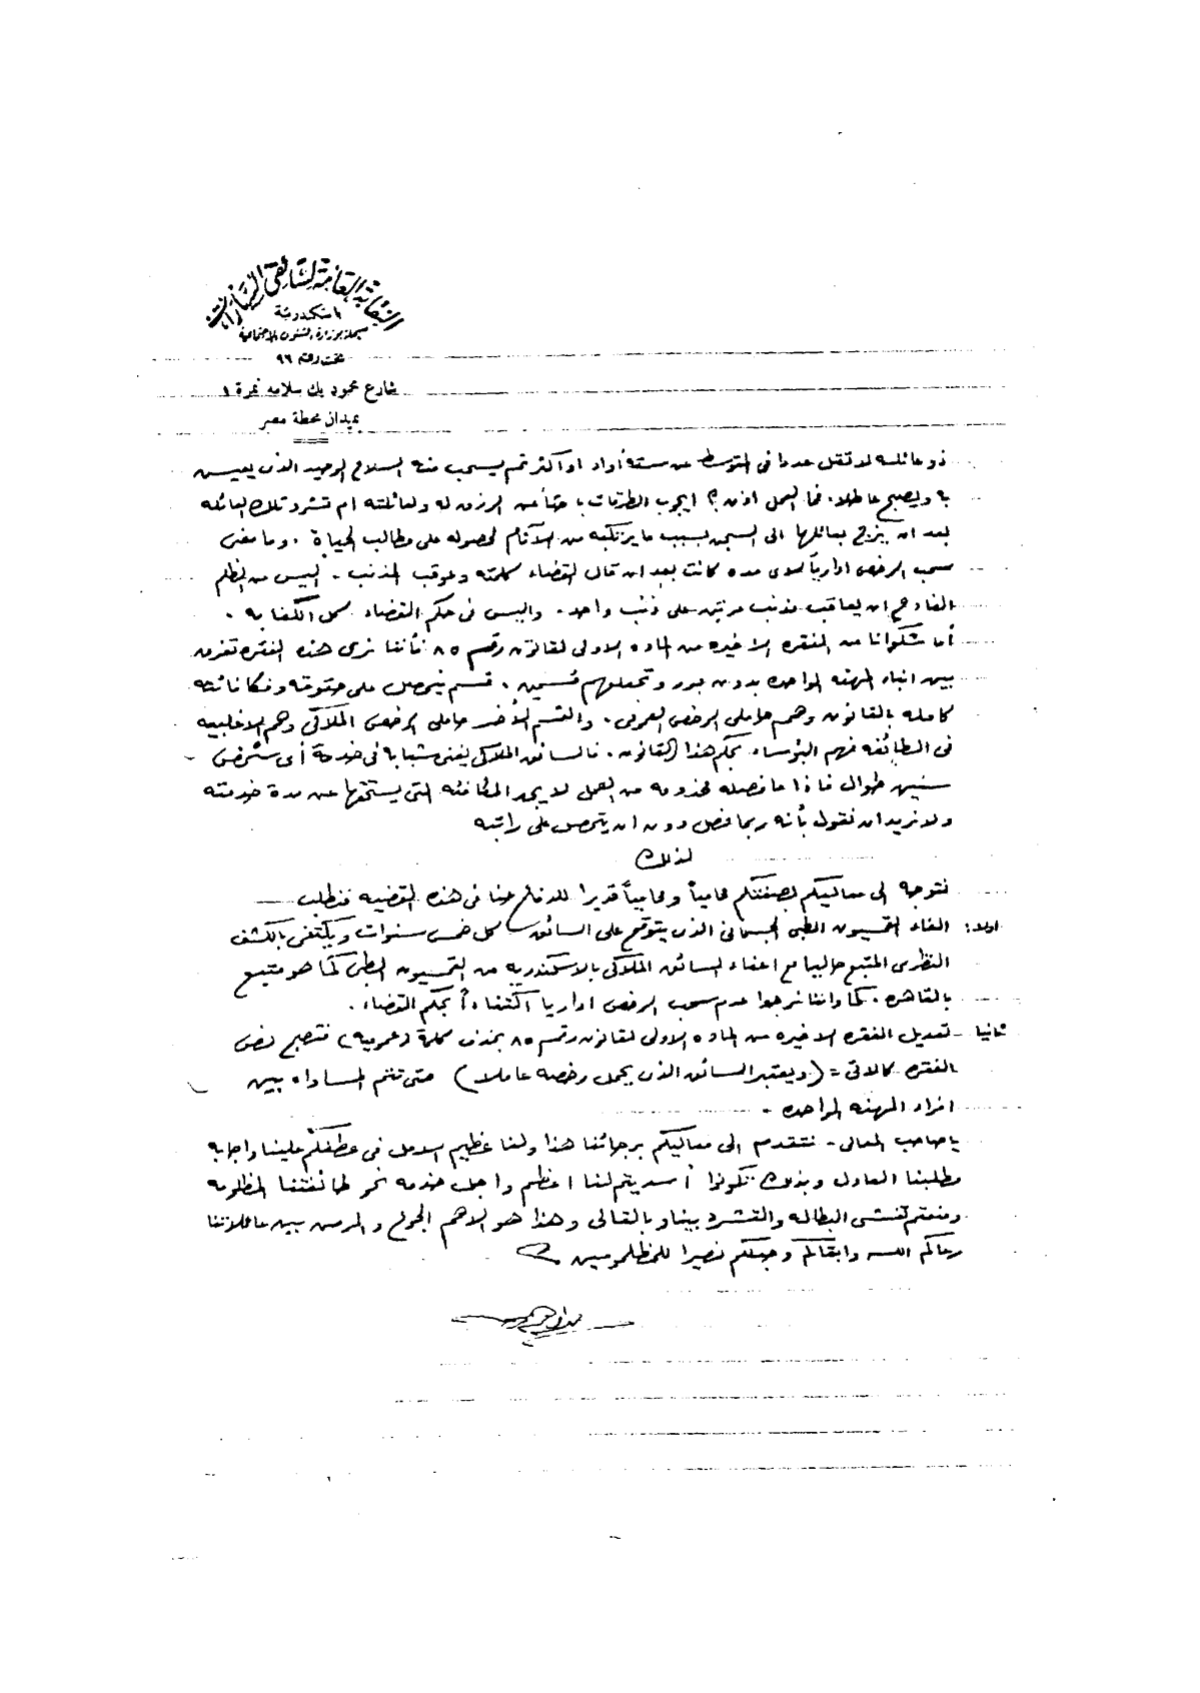 النقابة العامة لسائقى السيارات
باسكندرية
مسجلة بوزارة الشئون الاجتماعية
تحت رقم ٩٦
شارع محمود بك سلامه نمرة ١
بميدان محطة مصر
ذو عائله لا تقل عددا فى المتوسط عن ستة أفراد او اكثر ثم يسحب منه السلاح الوحيد الذى يعيش
به ويصبح عاطلا. فما العمل اذن ؟ ايجوب الطرقات باحثاً عن الرزق له ولعائلته ام تشرد تلك العائله
بعد ان يزج بعائلها الى السجن بسبب ما يرتكبه من الآثام لحصوله على مطالب الحياة . وما معنى
سحب الرخص ادارياً لاى مده كانت بعد ان قال القضاء كلمته وعوقب المذنب . اليس من الظلم
الفادح ان يعاقب مذنب مرتين على ذنب واحد . واليس فى حكم القضاء كل الكفايه .
أما شكوانا من الفقره الاخيره من الماده الاولى لقانون رقم ٨٥ فأننا نرى هذه الفقره تفرق
بين افراد المهنه الواحده بدون مبرر وتجعلهم قسمين . قسم يتحصل على حقوقه ومكافاته
كامله بالقانون وهم حاملى الرخص العمومى . والقسم الأخر حاملى الرخص الملاكى وهم الاغلبيه
فى الطائفه فهم البؤساء بحكم هذا القانون . فالسائق الملاكى يفنى شبابه فى خدمة أى شخص
سنين طوال فاذا ما فصله مخدومه من العمل لا يجد المكافئه التى يستحقها عن مدة خدمته
ولا نريد ان نقول بأنه ربما فصل دون ان يتحصل على راتبه
لذلك
نتوجه الى معاليكم بصفتكم محامياً قديرا للدفاع عنا فى هذه القضيه فنطلب
اولا : الغاء القمسيون الطبى الجسمانى الذى يتوقع على السائق كل خمس سنوات ويكتفى بالكشف
النظرى المتبع حاليا مع اعفاء السائق الملاكى بالاسكندريه من القمسيون الطبى كما هو متبع
بالقاهره . كما واننا نرجوا عدم سحب الرخص اداريا اكتفاءاً بحكم القضاء .
ثانيا - تعديل الفقره الاخيره من الماده الاولى لقانون رقم ٨٥ بحذف كلمة (عموميه) فتصبح نص
الفقره كالاتى = (ويعتبر السائق الذى يحمل رخصه عاملا) حتى تتم المساواه بين
افراد المهنه الواحده .
ياصاحب المعالى - نتقدم الى معاليكم برجائنا هذا ولنا عظيم الامل فى عطفكم علينا واجابة
مطلبنا العادل وبذلك تكونوا أسديتم لنا اعظم واجل خدمه نحو طائفتنا المظلومه
ومنعتم تفشى البطاله والتشرد بيننا وبالتالى وهذا هو الاهم الجوع والمرض بين عائلاتنا
رعاكم الله وابقاكم وجعلكم نصيرا للمظلومين